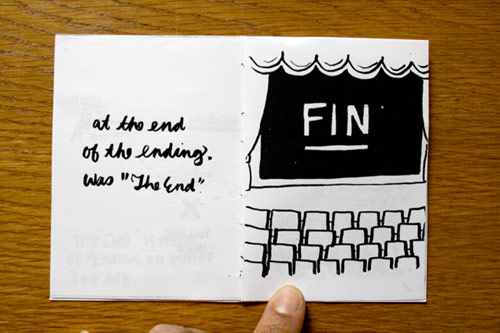 at the end
of the ending.
was "The End"
FIN